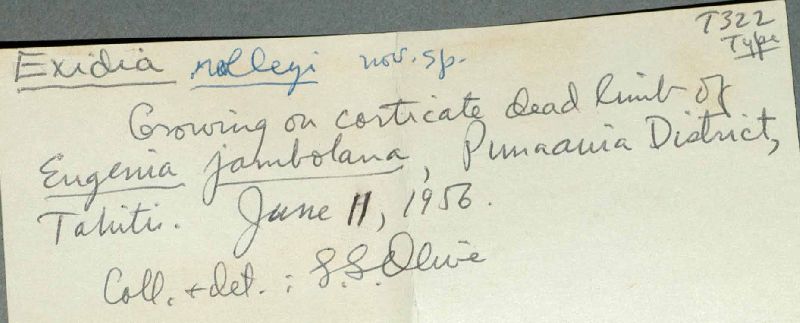 T322
Type
Exidia nolleyi nov. sp.
Growing on corticate dead limb of
Eugenia jambolana, Punaauia District,
Tahiti. June 11, 1956.
Coll. + det. : L.S. Olive